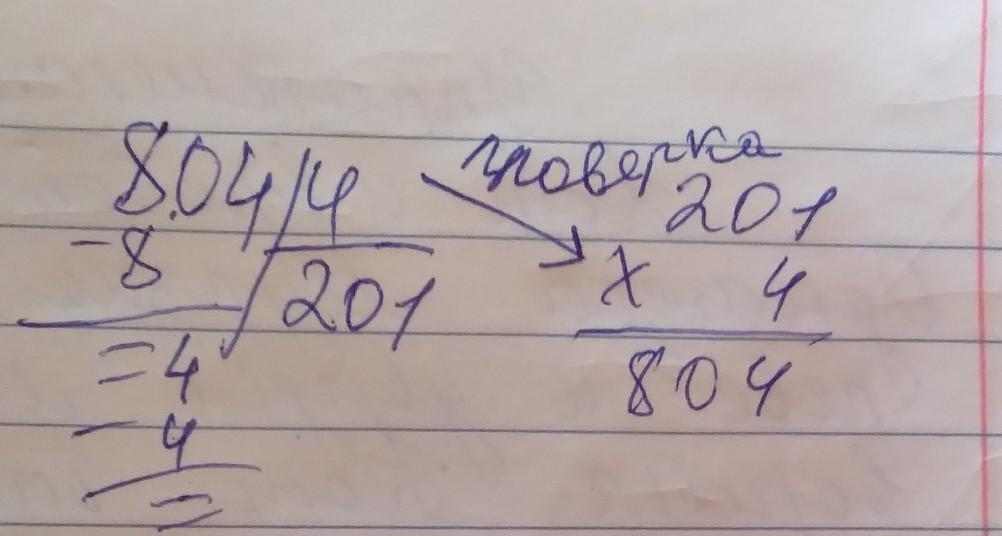 8.04/4
- 8
201
= 4
- 4
=
проверка
201
x 4
804